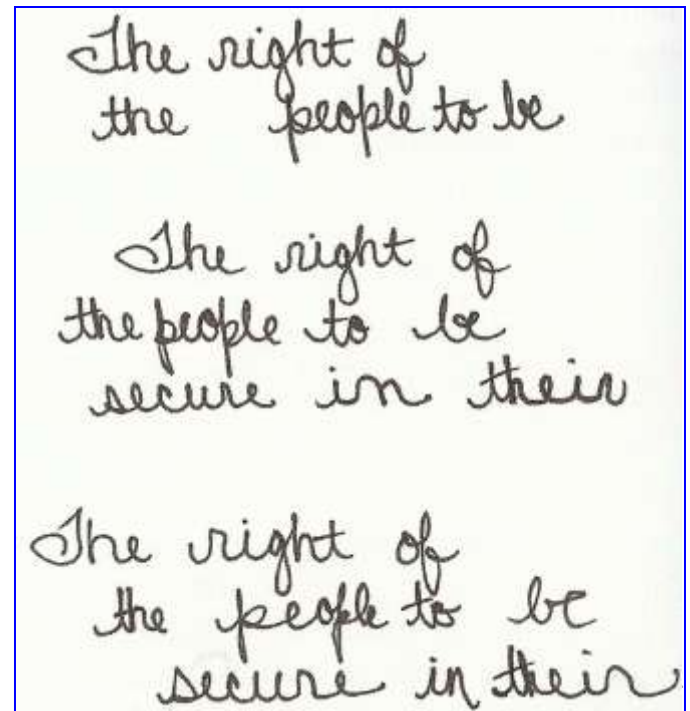 The right of
the people to be
The right of
the people to be
secure in their
The right of
the people to be
secure in their